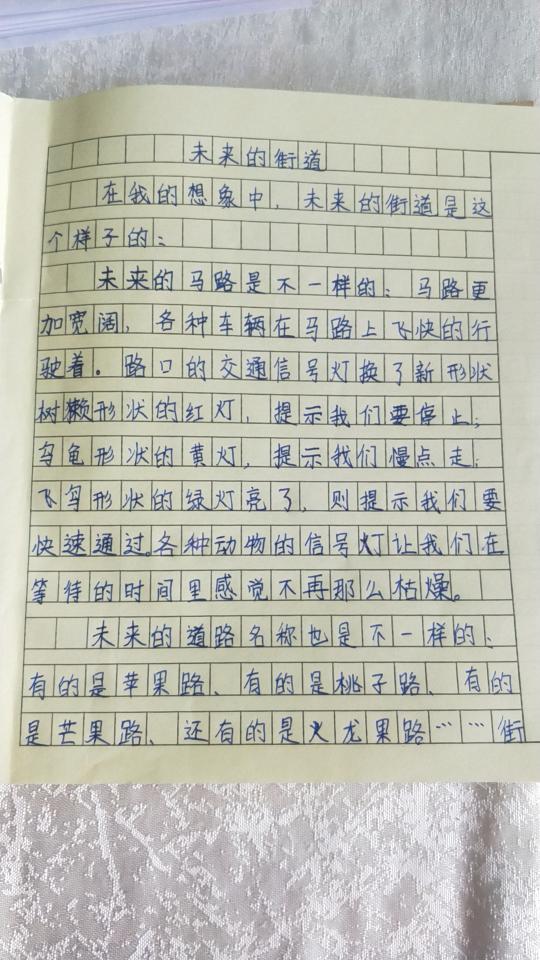 未来的街道
在我的想象中，未来的街道是这
个样子的：
未来的马路是不一样的：马路更
加宽阔，各种车辆在马路上飞快的行
驶着。路口的交通信号灯换了新形状
树獭形状的红灯，提示我们要停止；
乌龟形状的黄灯，提示我们慢点走；
飞鸟形状的绿灯亮了，则提示我们要
快速通过。各种动物的信号灯让我们在
等待的时间里感觉不再那么枯燥。
未来的道路名称也是不一样的：
有的是苹果路、有的是桃子路、有的
是芒果路、还有的是火龙果路……街